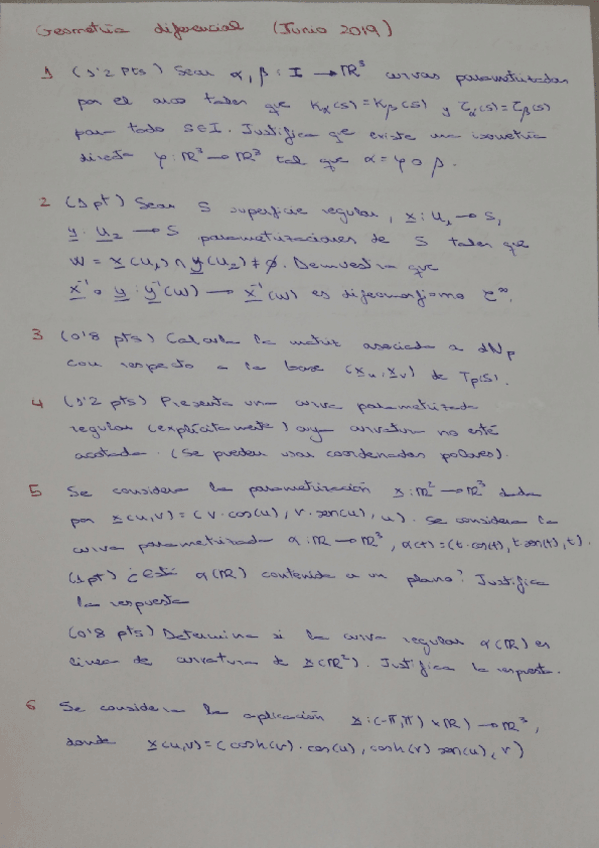 Geometría diferencial (Junio 2019)
1 (1'2 pts) Sean α, β : I → ℝ³ curvas parametrizadas
por el arco tales que Kα(s) = Kβ(s) y τα(s) = τβ(s)
para todo s∈I. Justifica que existe una isometría
directa φ : ℝ³ → ℝ³ tal que α = φ∘β.
2 (1 pt) Sean S superficie regular, x : U₁ → S,
y : U₂ → S parametrizaciones de S tales que
W = x(U₁) ∩ y(U₂) ≠ ∅. Demuestra que
x⁻¹∘y : y⁻¹(W) → x⁻¹(W) es difeomorfismo C∞.
3 (0'8 pts) Calcula la matriz asociada a dNp
con respecto a la base (xu, xv) de Tp(S).
4 (1'2 pts) Presenta una curva parametrizada
regular (explícitamente) cuya curvatura no esté
acotada. (Se pueden usar coordenadas polares).
5 Se considera la parametrización x : ℝ² → ℝ³ dada
por x(u,v) = (v·cos(u), v·sen(u), u). Se considera la
curva parametrizada α : ℝ → ℝ³, α(t) = (t·cos(t), t·sen(t), t).
(1 pt) ¿Está α(ℝ) contenida a un plano? Justifica
la respuesta
(0'8 pts) Determina si la curva regular α(ℝ) es
línea de curvatura de x(ℝ²). Justifica la respuesta.
6 Se considera la aplicación x : (-π,π) × ℝ) → ℝ³,
donde x(u,v) = (cosh(v)·cos(u), cosh(v) sen(u), v)